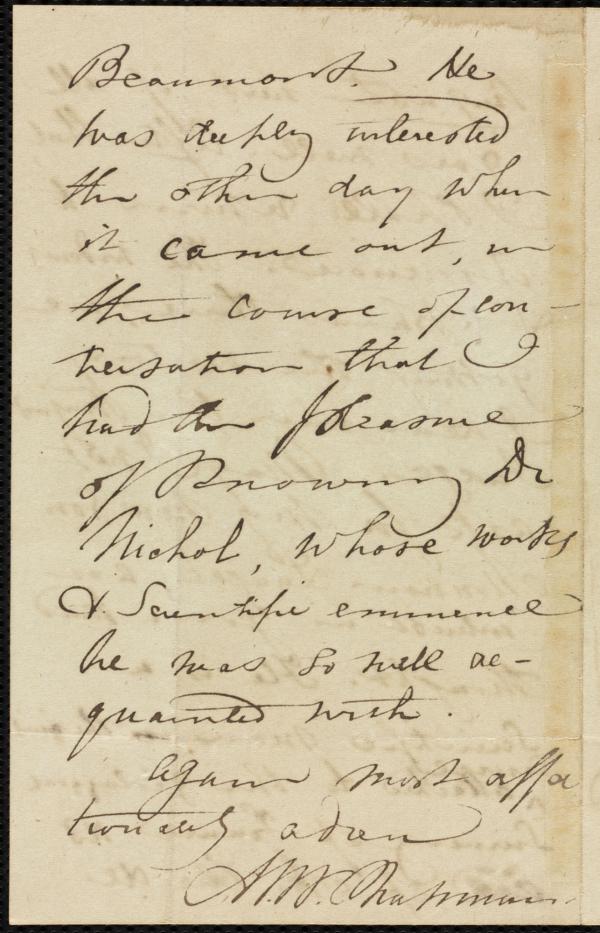 Beaumont. He
was deeply interested
the other day when
it came out, in
the course of con-
versation that I
had the pleasure
of knowing Dr
Nichol, whose works
& Scientific eminence
he was so well ac-
quainted with.
Again most affec
tionately adieu
M.W. Chapman.